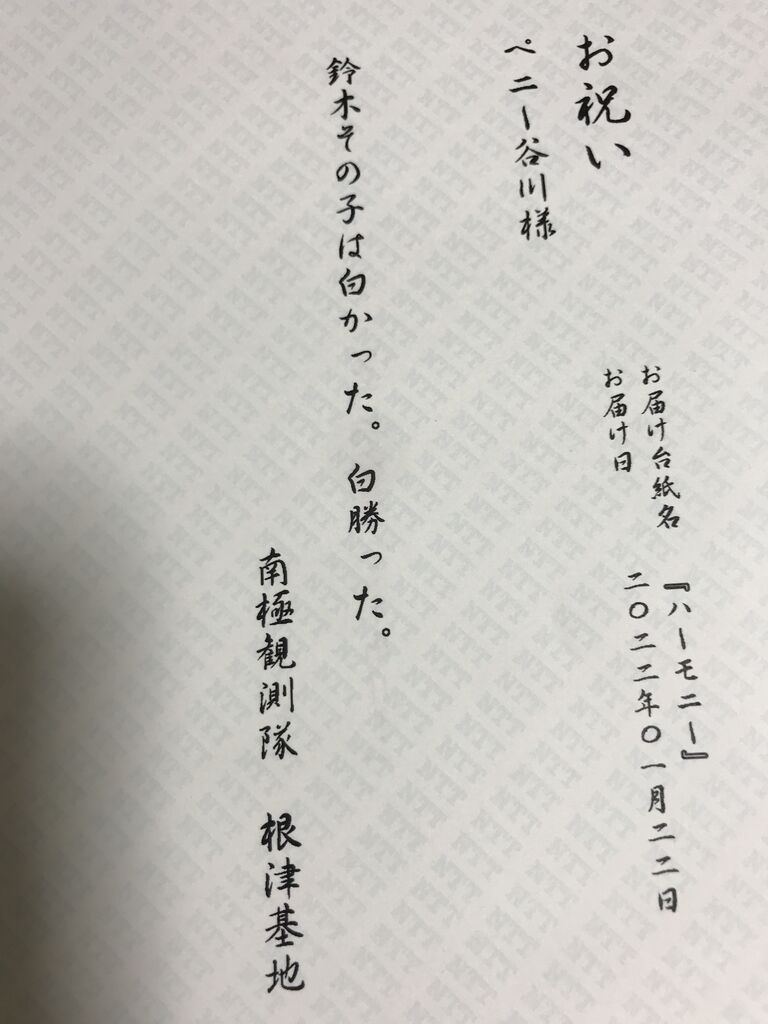 お祝い
ペニー谷川様
お届け台紙名 『ハーモニー』
お届け日 二〇二二年〇一月二二日
鈴木その子は白かった。白勝った。
南極観測隊 根津基地
NTT